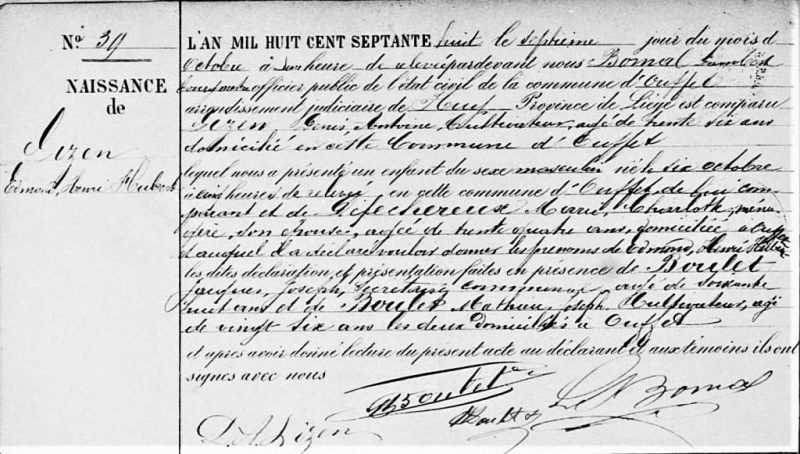 N° 39
NAISSANCE
de
Lizen
Edmond, Henri Hubert
L'AN MIL HUIT CENT SEPTANTE huit le septième jour du mois d
Octobre à une heure de relevée pardevant nous Bomal
officier public de l'état civil de la commune d'Ouffet
arrondissement judiciaire de Huy Province de Liège est comparu
Lizen Denis, Antoine, Cultivateur, agé de trente six ans
domicilié en cette Commune d'Ouffet
lequel nous a présenté un enfant du sexe masculin né le six octobre
à cinq heures de relevée, en cette commune d'Ouffet, de lui com
parant et de Défechereux Marie, Charlotte, ména
gère, son épouse, agée de trente quatre ans, domiciliée à Ouffet
et auquel il a déclaré vouloir donner les prénoms de Edmond, Henri Hubert
les dites déclaration et présentation faites en présence de Boulet
Jacques, Joseph, Secrétaire communal agé de soixante
huit ans et de Boulet Mathieu Joseph, Cultivateur, agé
de vingt six ans les deux domiciliés à Ouffet
et après avoir donné lecture du présent acte au déclarant et aux témoins ils ont
signés avec nous
Boulet
Boulet
Bomal
D. A. Lizen